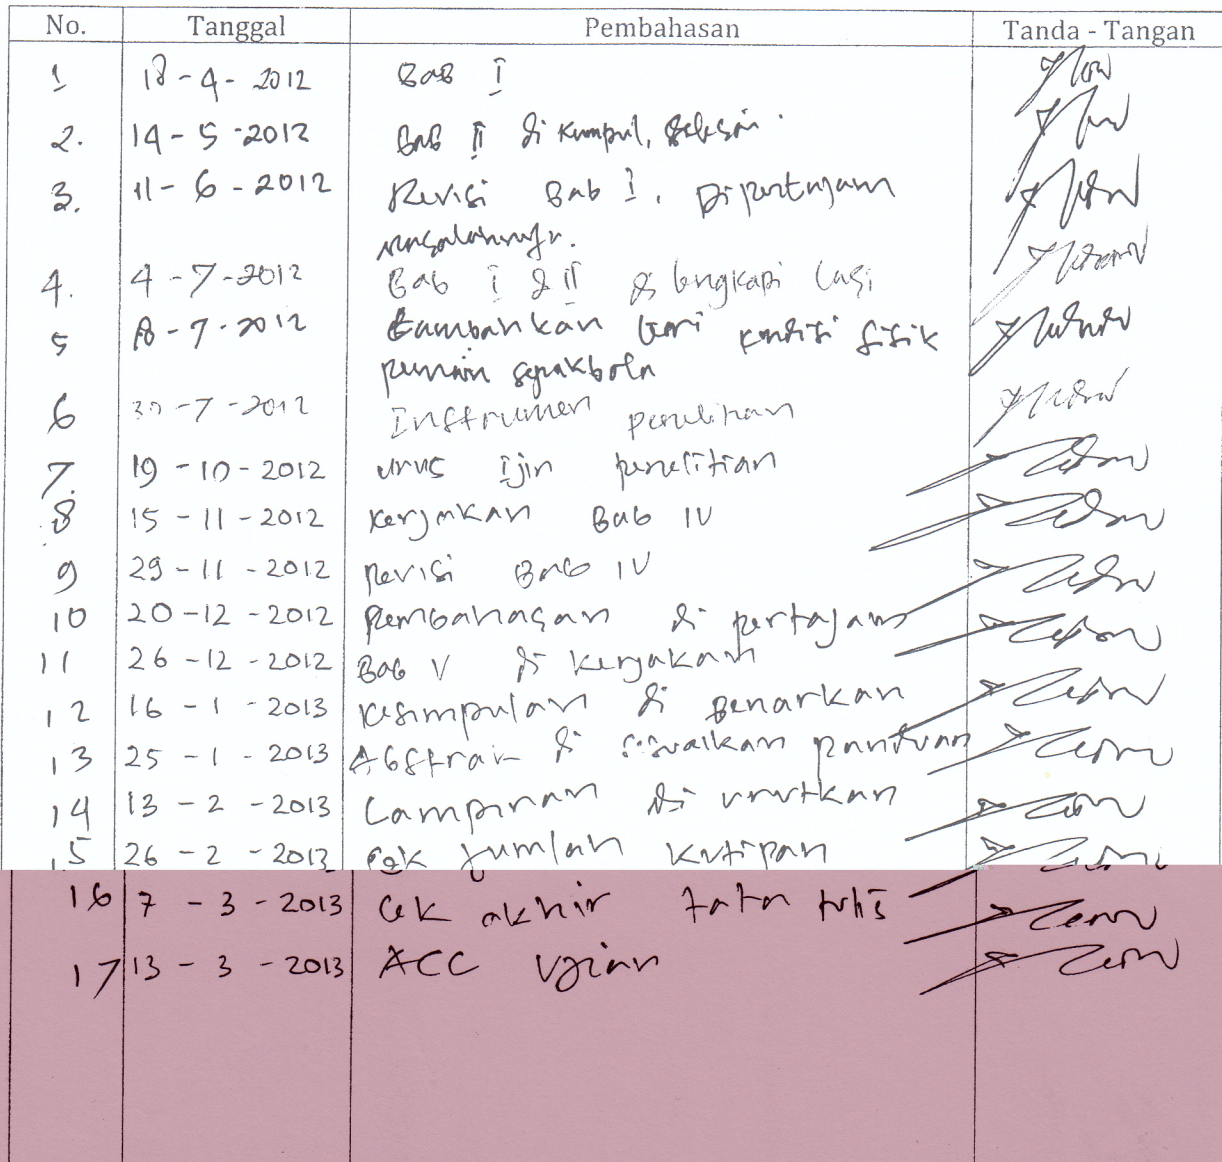 No. Tanggal Pembahasan Tanda - Tangan
1 18 - 4 - 2012 Bab I
2. 14 - 5 - 2012 Bab II di kumpul,
3. 11 - 6 - 2012 Revisi Bab I, Dipertajam
masalahnya.
4. 4 - 7 - 2012 Bab I & II di lengkapi lagi
5 - 7 - 2012 tambahkan teori kondisi fisik
pemain sepakbola
6 30 - 7 - 2012 Instrumen penelitian
7. 19 - 10 - 2012 urus Ijin penelitian
8 15 - 11 - 2012 kerjakan Bab IV
9 29 - 11 - 2012 Revisi Bab IV
10 20 - 12 - 2012 pembahasan di pertajam
11 26 - 12 - 2012 Bab V di kerjakan
12 16 - 1 - 2013 kesimpulan di benarkan
13 25 - 1 - 2013 Abstrak di sesuaikan panduan
14 13 - 2 - 2013 Lampiran di urutkan
15 26 - 2 - 2013 cek jumlah kutipan
16 7 - 3 - 2013 cek akhir tata tulis
17 13 - 3 - 2013 ACC Ujian